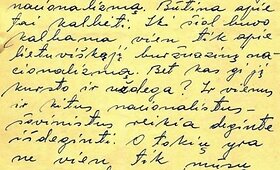 nacionalizmą. Būtina apie
tai kalbėti. Iki šiol buvo
kalbama vien tik apie
lietuviškąjį buržuazinį na-
cionalizmą. Bet kas gi jį
kursto ir uždega? Ir vienus
ir kitus nacionalistus-
šovinistus reikia deginte
išdeginti. O tokių yra
ne vien tik mūsų